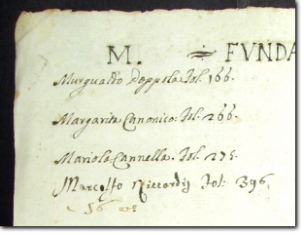 M. ÷ FUNDA
Murgualto Doppela. Fol. 166.
Margarita Canonico. Fol. 266.
Mariola Cannella. Fol. 275.
Marcolfo Riccardi Fol. 396.